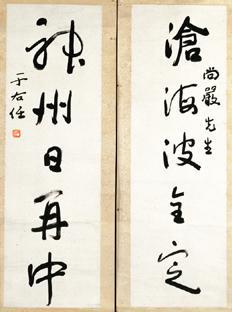 滄海波全定
尚嚴先生
神州日再中
于右任